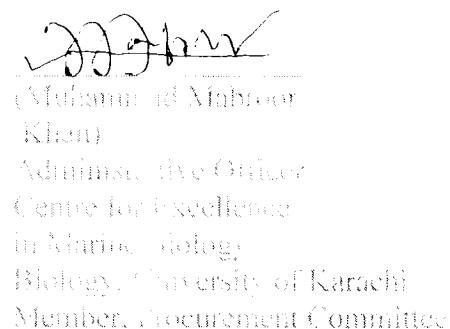 (Muhammad Mabroor
Khan)
Administrative Officer
Centre for Excellence
in Marine Biology
Biology, University of Karachi
Member, Procurement Committee